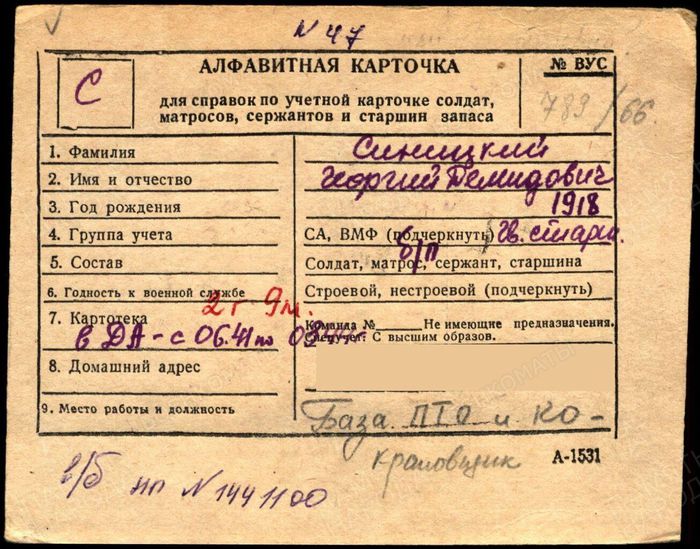 N 47
С
АЛФАВИТНАЯ КАРТОЧКА
для справок по учетной карточке солдат,
матросов, сержантов и старшин запаса
№ ВУС
783/66.
1. Фамилия
Синицкий
2. Имя и отчество
Георгий Демидович
3. Год рождения
1918
4. Группа учета
СА, ВМФ (подчеркнуть) Гв. старш.
5. Состав
б/п
Солдат, матрос, сержант, старшина
6. Годность к военной службе
Строевой, нестроевой (подчеркнуть)
2 г 9м.
7. Картотека
в ДА - с 06.41 по
Команда №______ Не имеющие предназначения.
С высшим образов.
8. Домашний адрес
9. Место работы и должность
База ПТО и КО-
кладовщик
А-1531
в/б нп N 1441100